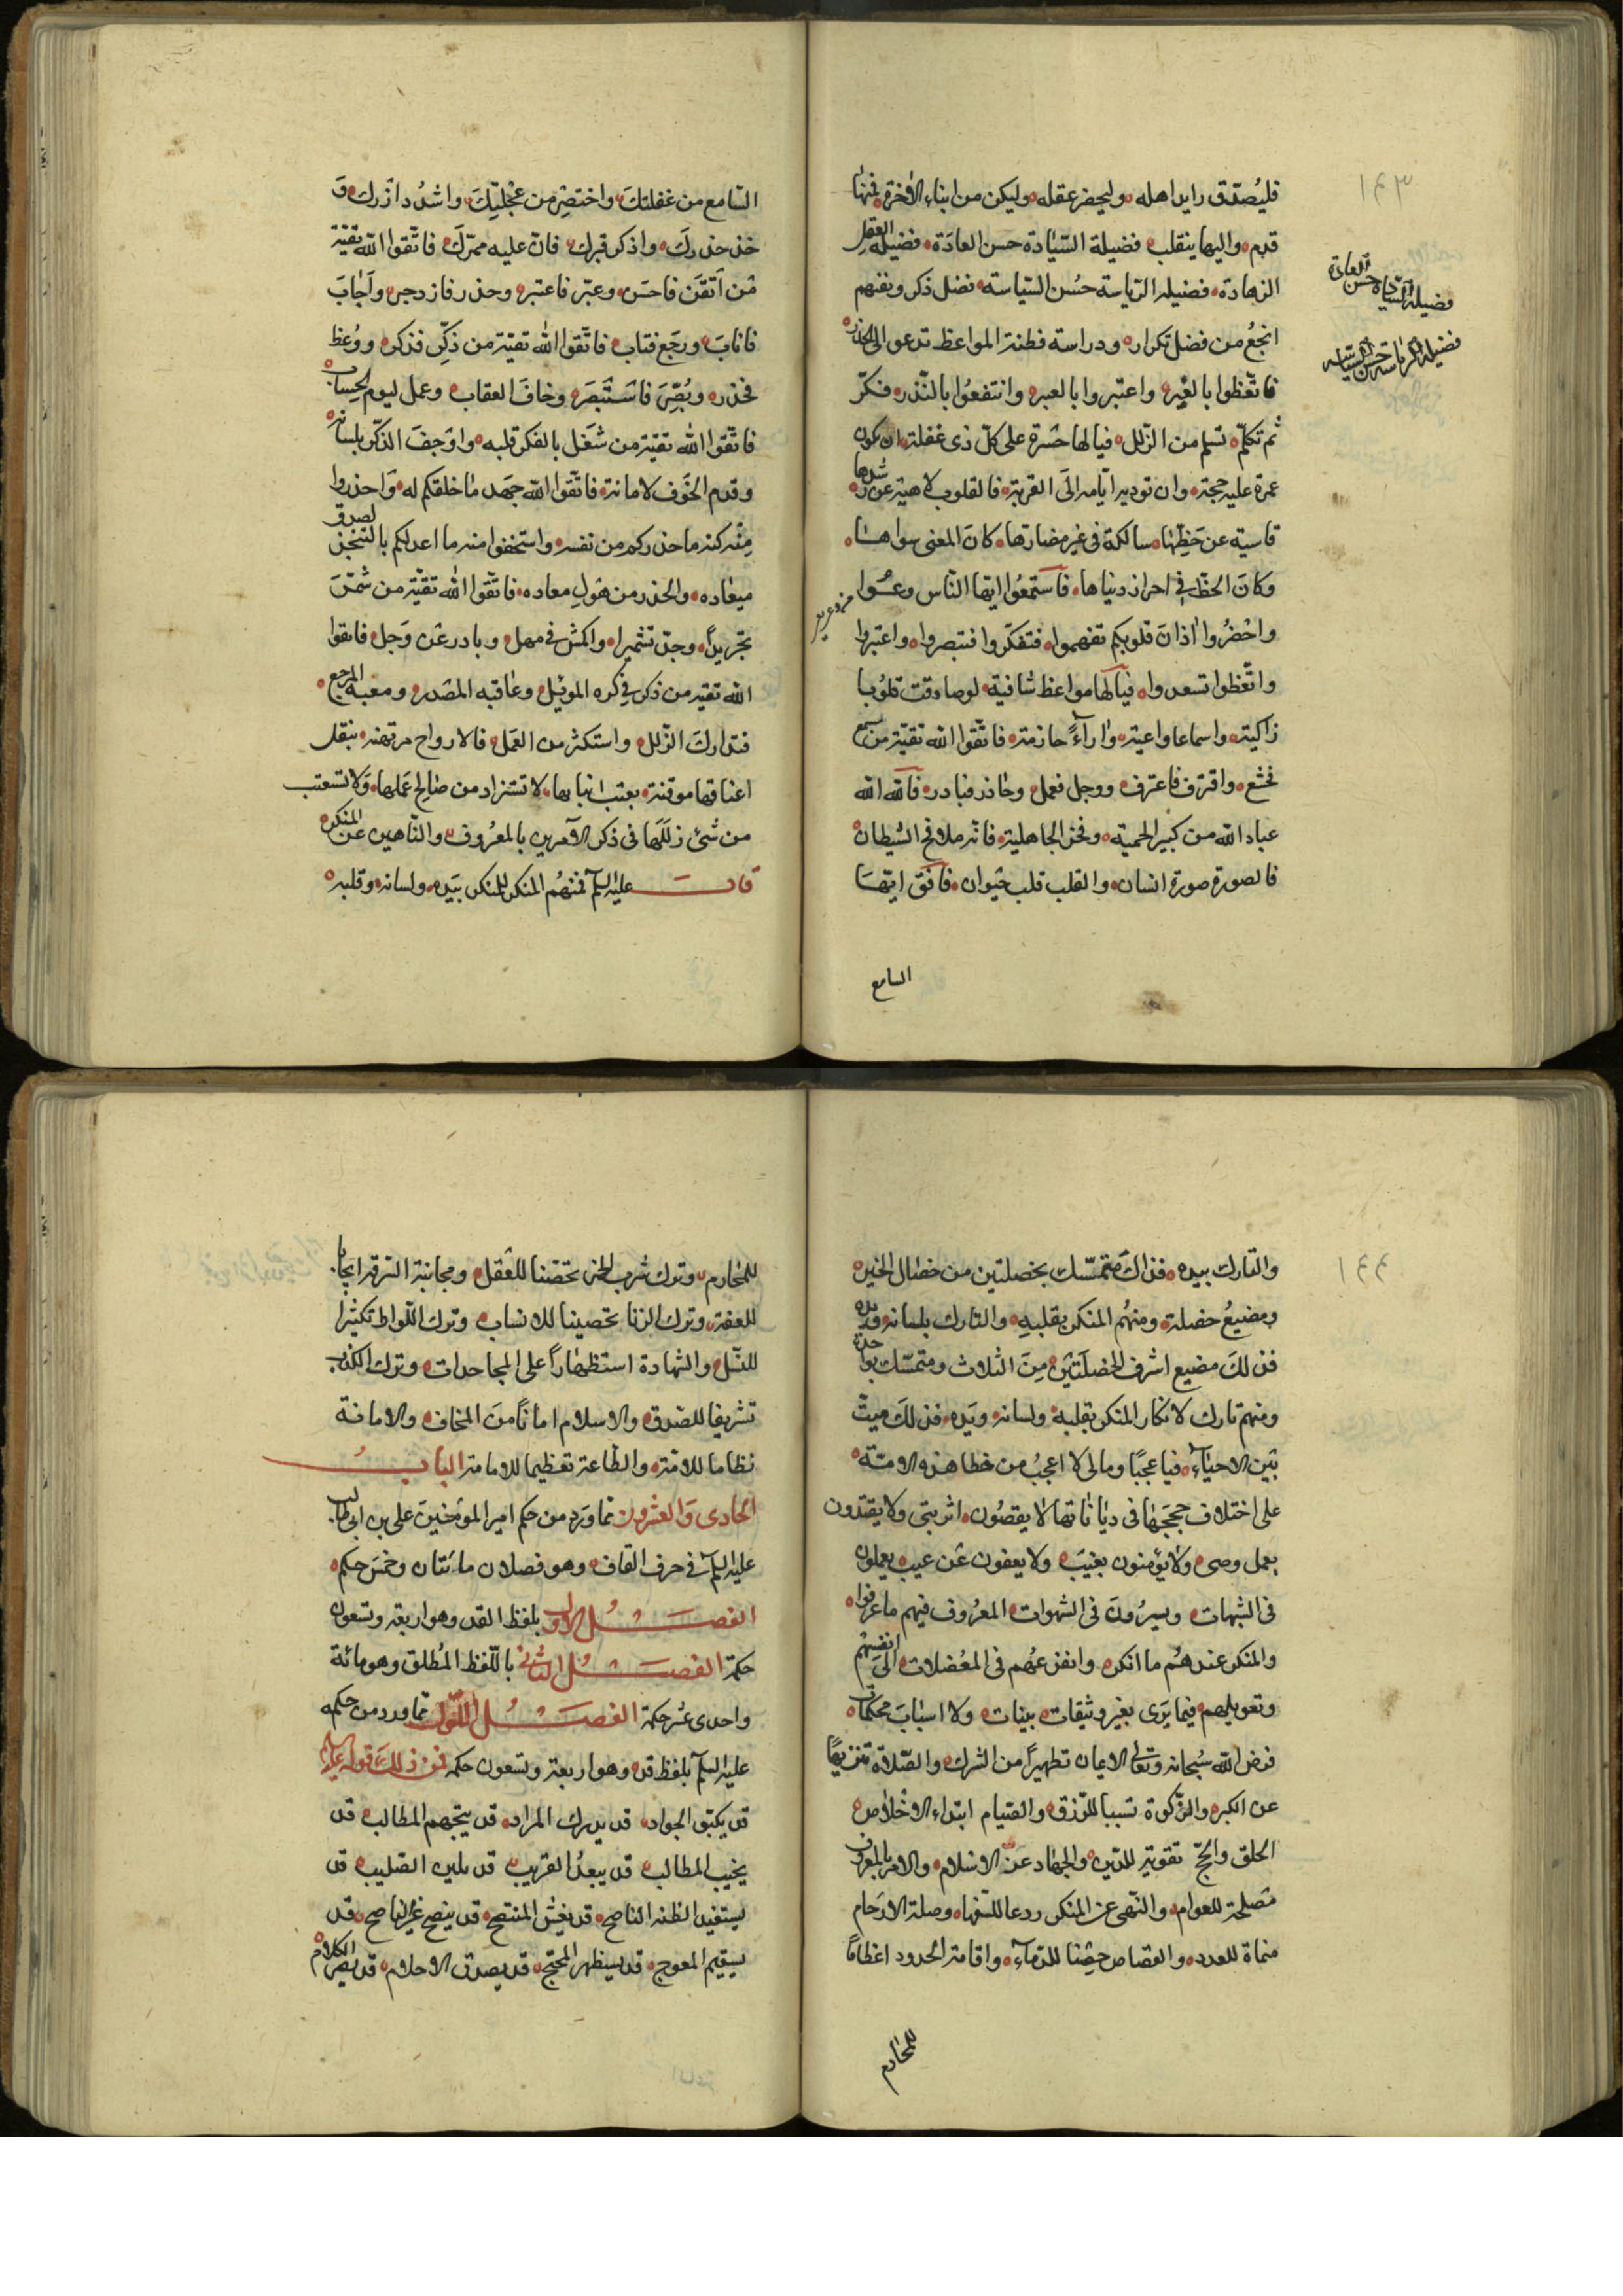 ١٤٣
فليُصدّق رايد اهله وليحضر عقله وليكن من ابناء الآخرة فمنها
قدم واليها ينقلب فضيلة السّيادة حسن العادة فضيلة العقل
الزهادة فضيلة الرّياسة حسُن السّياسة فضل ذكر وتفهم
انجعُ من فضل تكرار ودراسة فطنة المواعظ تدعو الى الحذر
فاتّعظوا بالغِير واعتبروا بالعبر وانتفعُوا بالنّذر فكّر
ثم تكلّم تسلم من الزّلل فيا لها حَسْرة على كلّ ذى غفلة ان يكون
عمرة عليه حجة وان توديه ايّامه الَى القربة فالقلوب لاهية عن رشدها
قاسية عن حَظِّها سالكة فى غير مضمارها كانَ المعنى سواها
وكانَ الحظّ فى احراز دنياها فاستمعُوا ايّها النّاس وعُوا
واحْضرُوا آذانَ قلوبكم تفهموا فتفكّروا فتبصروا واعتبروا
واتّعظوا تسعدوا فيا لها مواعظ شافية لو صادقت قلوُبا
زاكية واسماعا واعية واراءً حازمة فاتّقوا الله تقيّة من سمع
فخشع واقترف فاعترف ووجل فعمل وحاذر فبادر فالله الله
عباد الله من كبير الحمية وفخر الجاهلية فانّه ملاقح الشيطان
فالصورة صورة انسان والقلب قلب حَيوان فافق ايّها
السامع
فضيلة السّيادة حسن العادة
فضيلة الرّياسة حسن السّياسة
السّامع من غفلتكَ واختصِر من عجْلتِكَ واشدُد ازرك وَ
خذ حذركَ واذكر قبرك فانّ عليه ممرّكَ فاتّقوا الله تقيّة
مَن اَتقَن فاحسَن وعبّر فاعتبر وحذر فازدجر واَجابَ
فانابَ ورجَع فتاب فاتّقوا الله تقيّة من ذكّر فذكر ووُعظ
فحذر وبُصِّر فاسْتَبصَر وخافَ العقاب وعمل ليوم الحِساب
فاتّقوا الله تقيّة من شَغل بالفكر قلبه واوْجفَ الذكّر بلسانه
وقدم الخَوف لامانه فاتّقوا الله جَهد ما خلقكم له وَاحذروا
مِنْه كنه ما حذركم من نفسه واستحقوا منه ما اعد لكم بالتنجز لصدق
ميعاده والحذر من هَولِ معاده فاتّقوا الله تقيّة من شمّرَ
تجريداً وجدّ تشميرا واكمش فى مهل وبادر عَن وَجل فاتقوا
الله تقيّة من ذكر فى كره الموئِل وعاقبه المصْدر ومغبة المرجع
فتداركَ الزّلل واستكثر من العَمل فالارواح مرتهنه بثقل
اعناقها موقنة بغيب انبائها لا تستزاد من صَالح عَملها وَلا تستعتب
من سُئ زلَلَها فى ذكر الآمرين بالمعرُوف والنّاهين عَن المنكر
قال عليه السلم فمنهُم المنكر للمنكر بيَده ولسانه وقلبه
١٤٤
والتارك بيده فذاكَ متمسّك بخصلتين من خصَال الخير
ومضيعُ خصلة ومنهُم المنكر بقلبهِ والتارك بلسانه ويده
فذلكَ مضيع اشرف الخصلَتَيْن مِنَ الثلاث ومتمسّك بواحدة
ومنهم تارك لانكار المنكر بقلبه ولسانه ويَده فذلكَ ميتّ
بَين الاحيَاء فيا عجبًا وما لى لا اعجبُ من خطا هذه الامّة
على اختلاف حججَها فى ديَاناتها لا يقصُون اثر نبّى ولا يقتدون
بعمل وصىّ ولا يؤمنون بغيَب ولا يعفون عَن عيب يعملون
فى الشبهات ويسيرُونَ فى الشهوات المعرُوف فيهم ما عرفوا
والمنكر عندهُم ما انكرو ومفزعهُم فى المعُضلات الى انفسهُم
وتعويلهم فيما يَرى بغير وثيقات بينات ولا اسبَابَ محكمات
فرض الله سُبحانه وتعَالى الايمان تطهيرًا من الشرك والصّلاة تنزيهًا
عن الكبر والزّكوة تسببا للّرزق والصّيام ابتداء لاخلاص
الخلق والحَجّ تقوية للدّين والجهاد عزّ الاسْلام والامر بالمعروف
مَصلحة للعوام والنّهى عن المنكر ردعا للسّفهاء وصلة الارحَام
منماة للعدد والقصاص حِقنا للدّماء واقامة الحدود اعظامًا
للمحارم
للمحَارم وترك شرب الخمر تحصّنا للعَقل ومجانبة السّرقه ايجابا
للعفة وترك الزنا تحصينا للانساب وترك اللّواط تكثيرا
للنّسل والشهادة استظهَاراً على المجاحدات وترك الكذب
تشريفا للصّدق والاسلام امانًا منَ المخاف والامانة
نظاما للامّة والطّاعة تعظيما للامامة البابُ
الحادى وَالعشرون مّما ورَد من حكم امير المؤمنينَ على بن ابى طالب
عليه السلم فى حرف القاف وهو فصلان مائتان وخمسَ حكم
الفصْلُ الاول بلفظ القد وهو اربعة وتسعون
حكمة الفصْلُ الثانى باللّفظ المُطلق وهو مائة
واحدى عشر حكمة الفصْلُ الاَوّل مّما ورد من حكمه
عليه السلم بلفظ قد وهو اربعة وتسعون حكمة فمن ذلكَ قوله عليه السلم
قد يكبّو الجواد قد يدرك المراد قد يتجهم المطالب قد
يخيب المطالب قد يبعدُ القريب قد يلين الصّليب قد
يستفيد الظنه الناصح قد يغشّ المنتصح قد ينصح غير الناصح قد
يسيقيم المعوج قد يستظهر المحتج قد يصدق الاحلام قد يضر الكلام